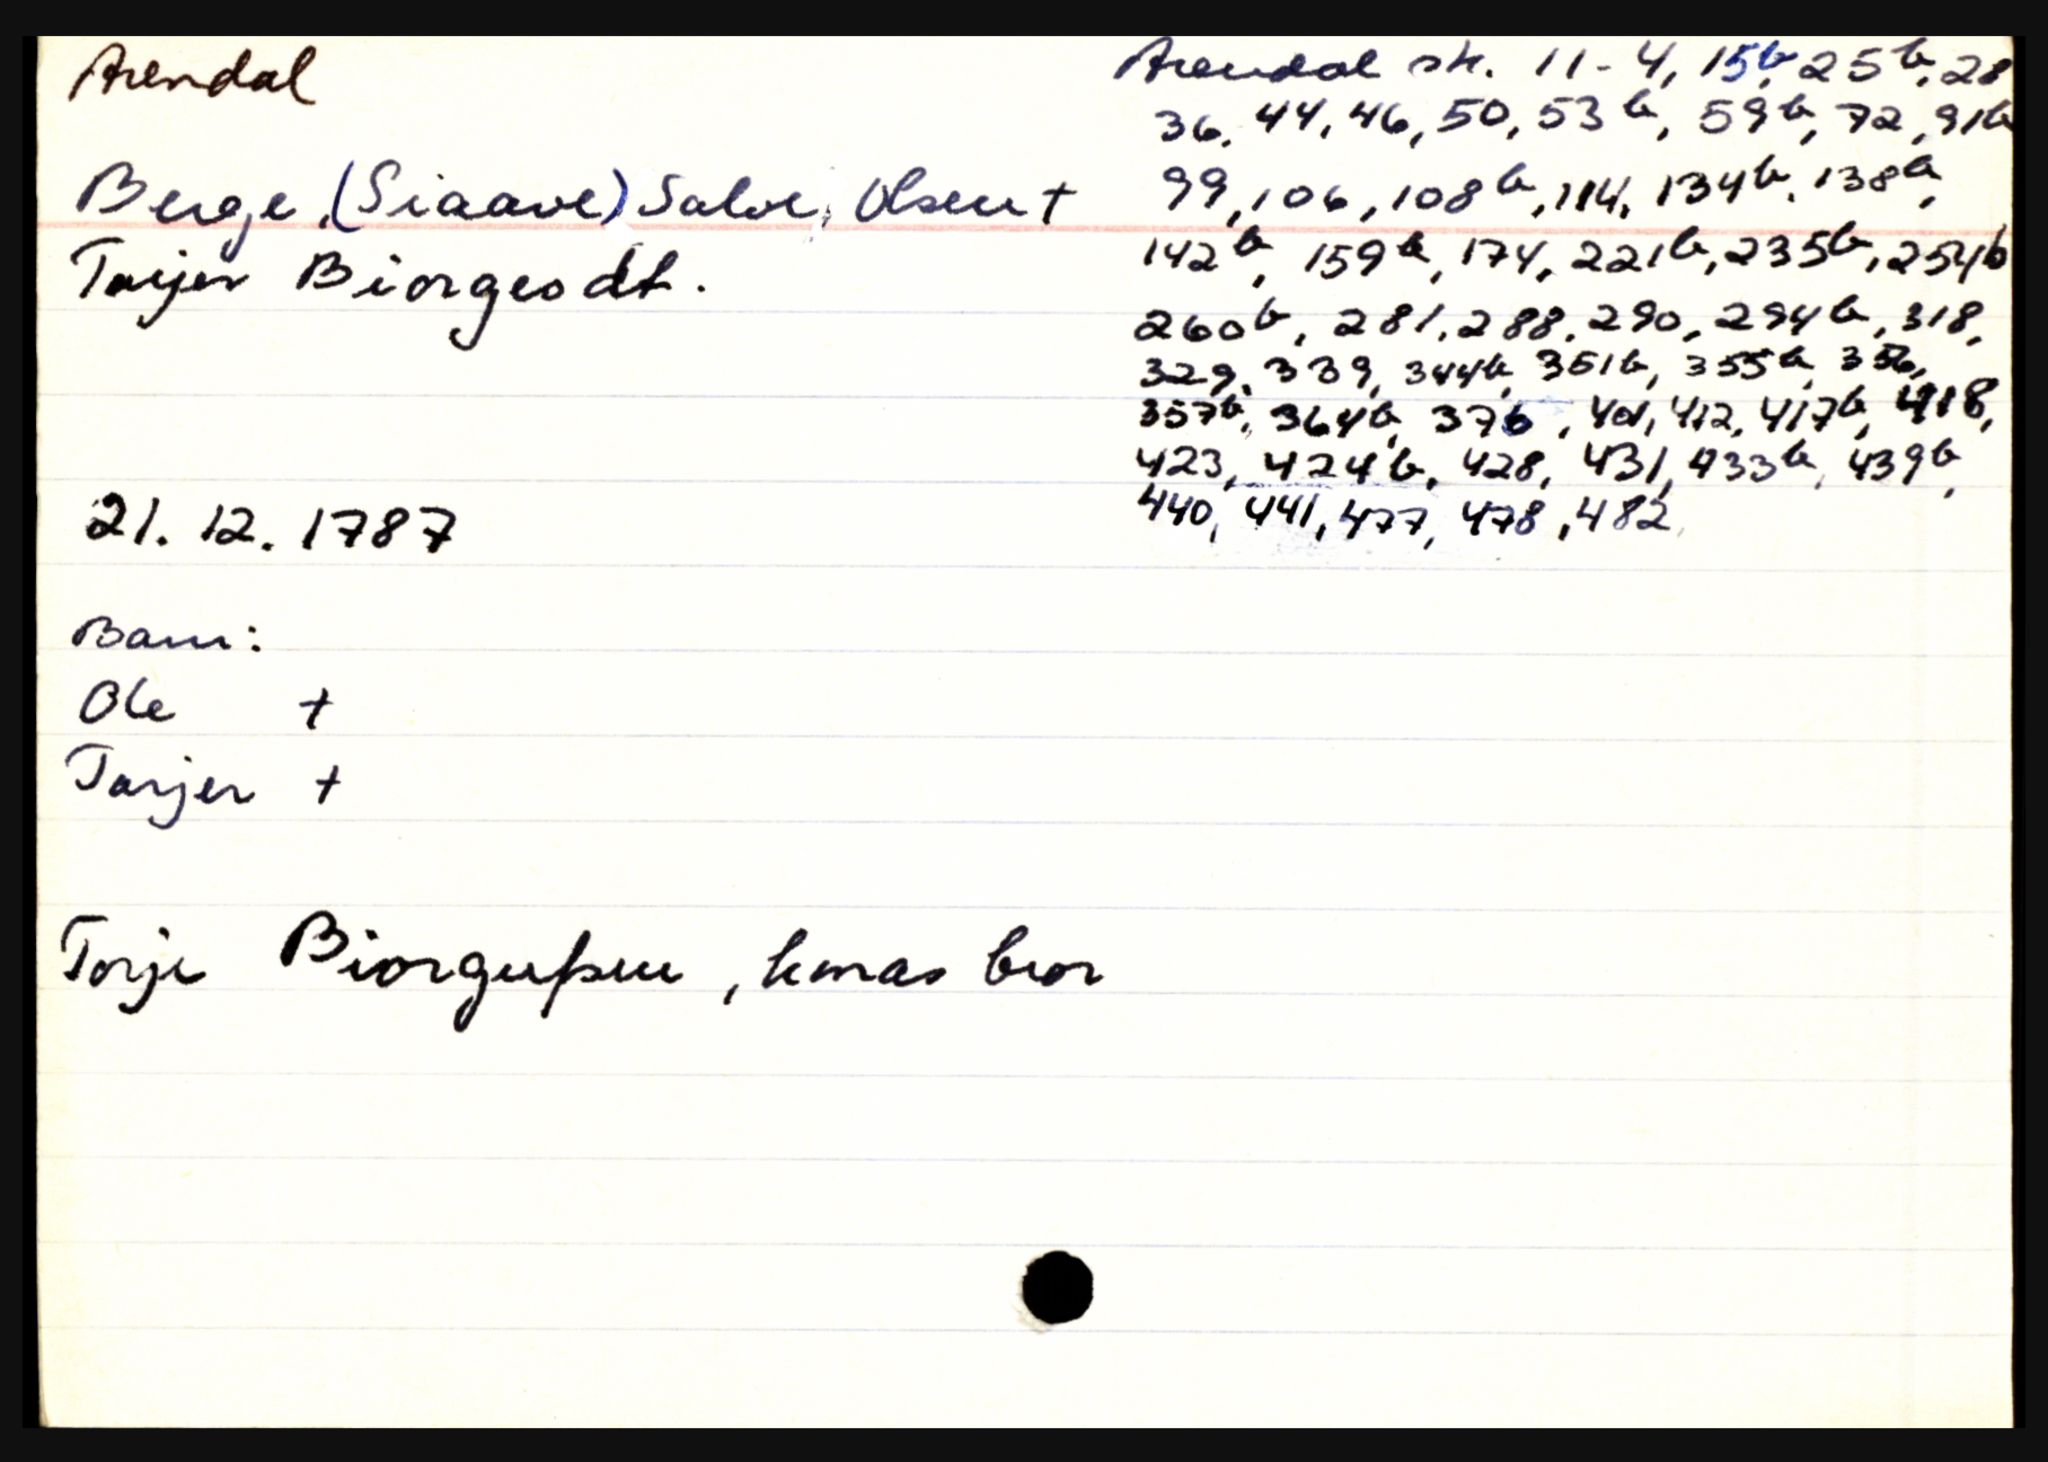 Arendal
Arendal sk. 11-4, 15b, 25b, 28
36, 44, 46, 50, 53b, 59b, 72, 91b
99, 106, 108b, 114, 134b, 138b,
142b, 159b, 174, 221b, 235b, 254b
260b, 281, 288, 290, 294b, 318,
329, 339, 344b, 351b, 355b, 356,
357b, 364b, 376, 401, 412, 417b, 418,
423, 424b, 428, 431, 433b, 439b,
440, 441, 477, 478, 482,
Berge, (Siaave) Salve, Olsen +
Tarjer Biorgesdt.
21. 12. 1787
Barn:
Ole +
Tarjer +
Torje Biorgußen, konas bror